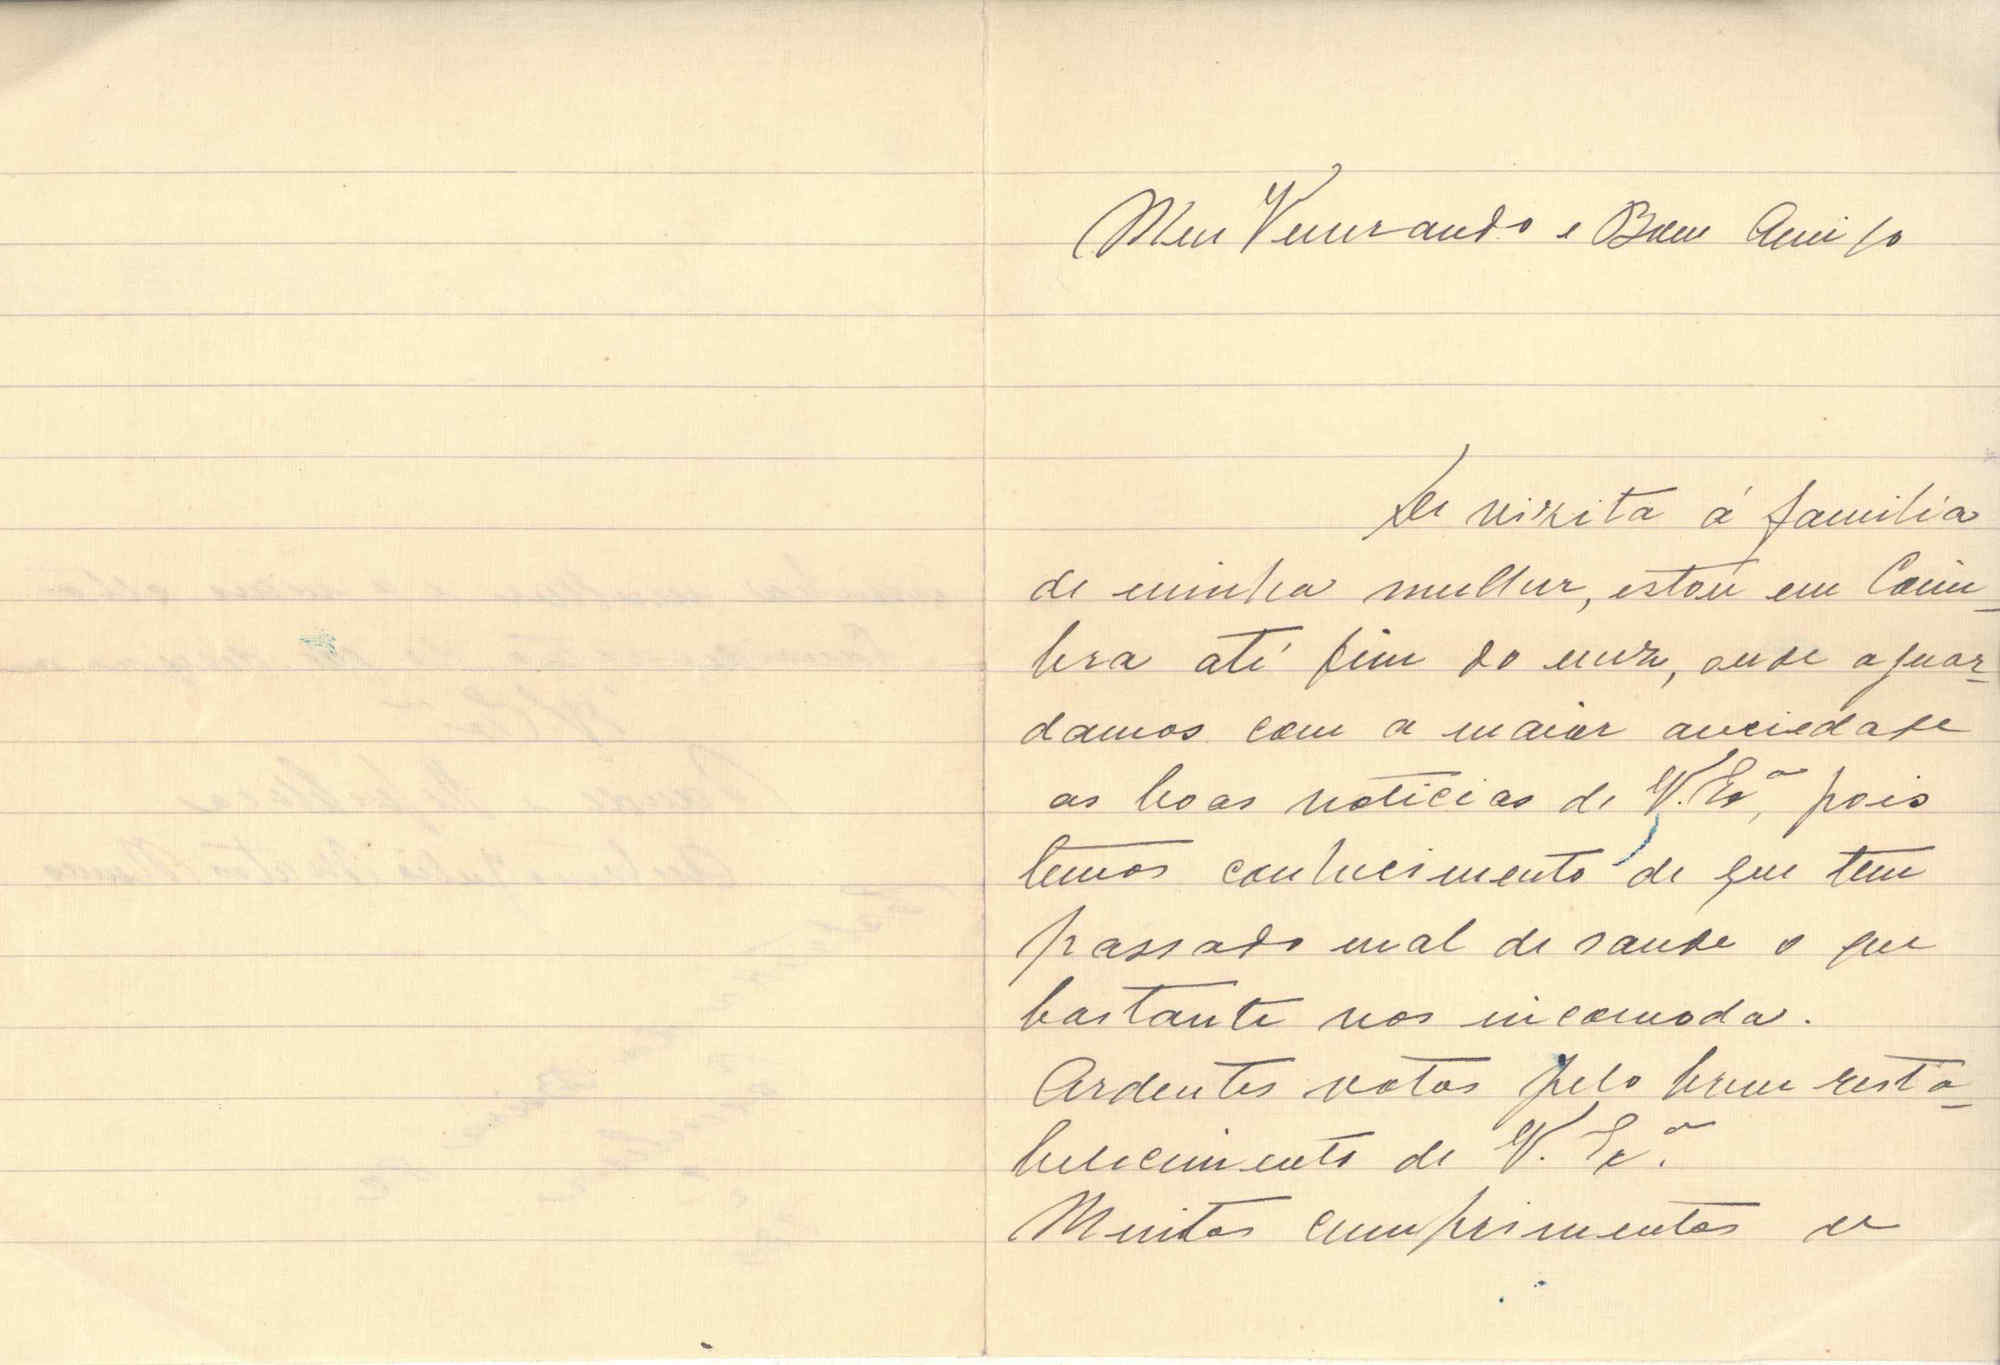 Meu Venerando e Bom Amigo
De vizita á familia
de minha mulher, estou em Coim-
bra até fim do mez, onde aguar-
damos com a maior anciedade
as boas noticias de V. Exª, pois
temos conhecimento de que tem
passado mal de saude o que
bastante nos incomoda.
Ardentes votos pelo breve resta-
belecimento de V. Exª.
Muitos cumprimentos de